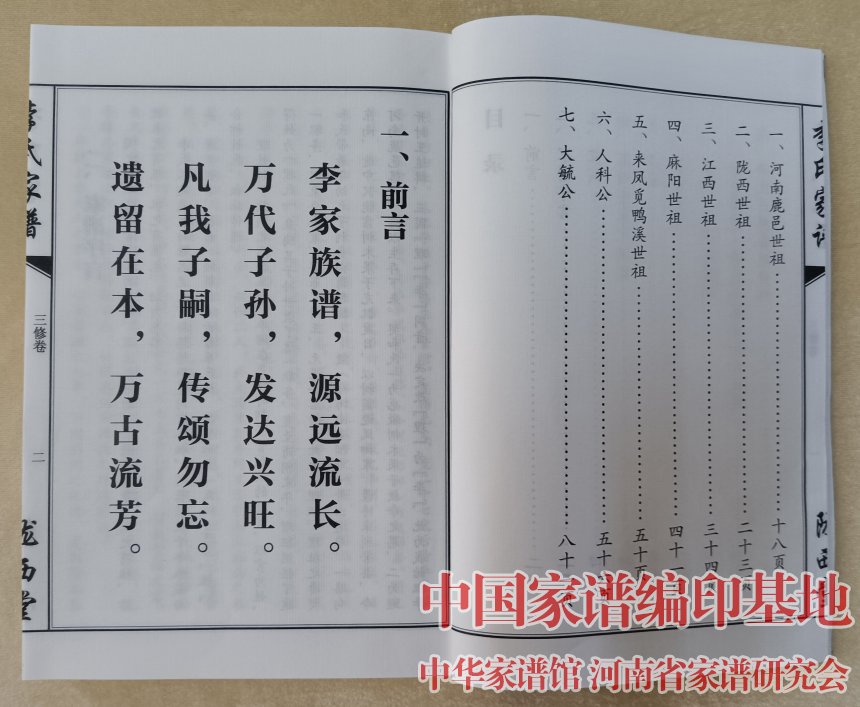 一、河南鹿邑世祖……十八页
二、陇西世祖……二十三页
三、江西世祖……三十四
四、麻阳世祖……四十一
五、来凤觅鸭溪世祖……五十页
六、人科公……五十
七、大毓公……八十
一、前言
李家族谱，源远流长。
万代子孙，发达兴旺。
凡我子嗣，传颂勿忘。
遗留在本，万古流芳。
李氏家谱
三修卷
二
陇西堂
中国家谱编印基地
中华家谱馆 河南省家谱研究会